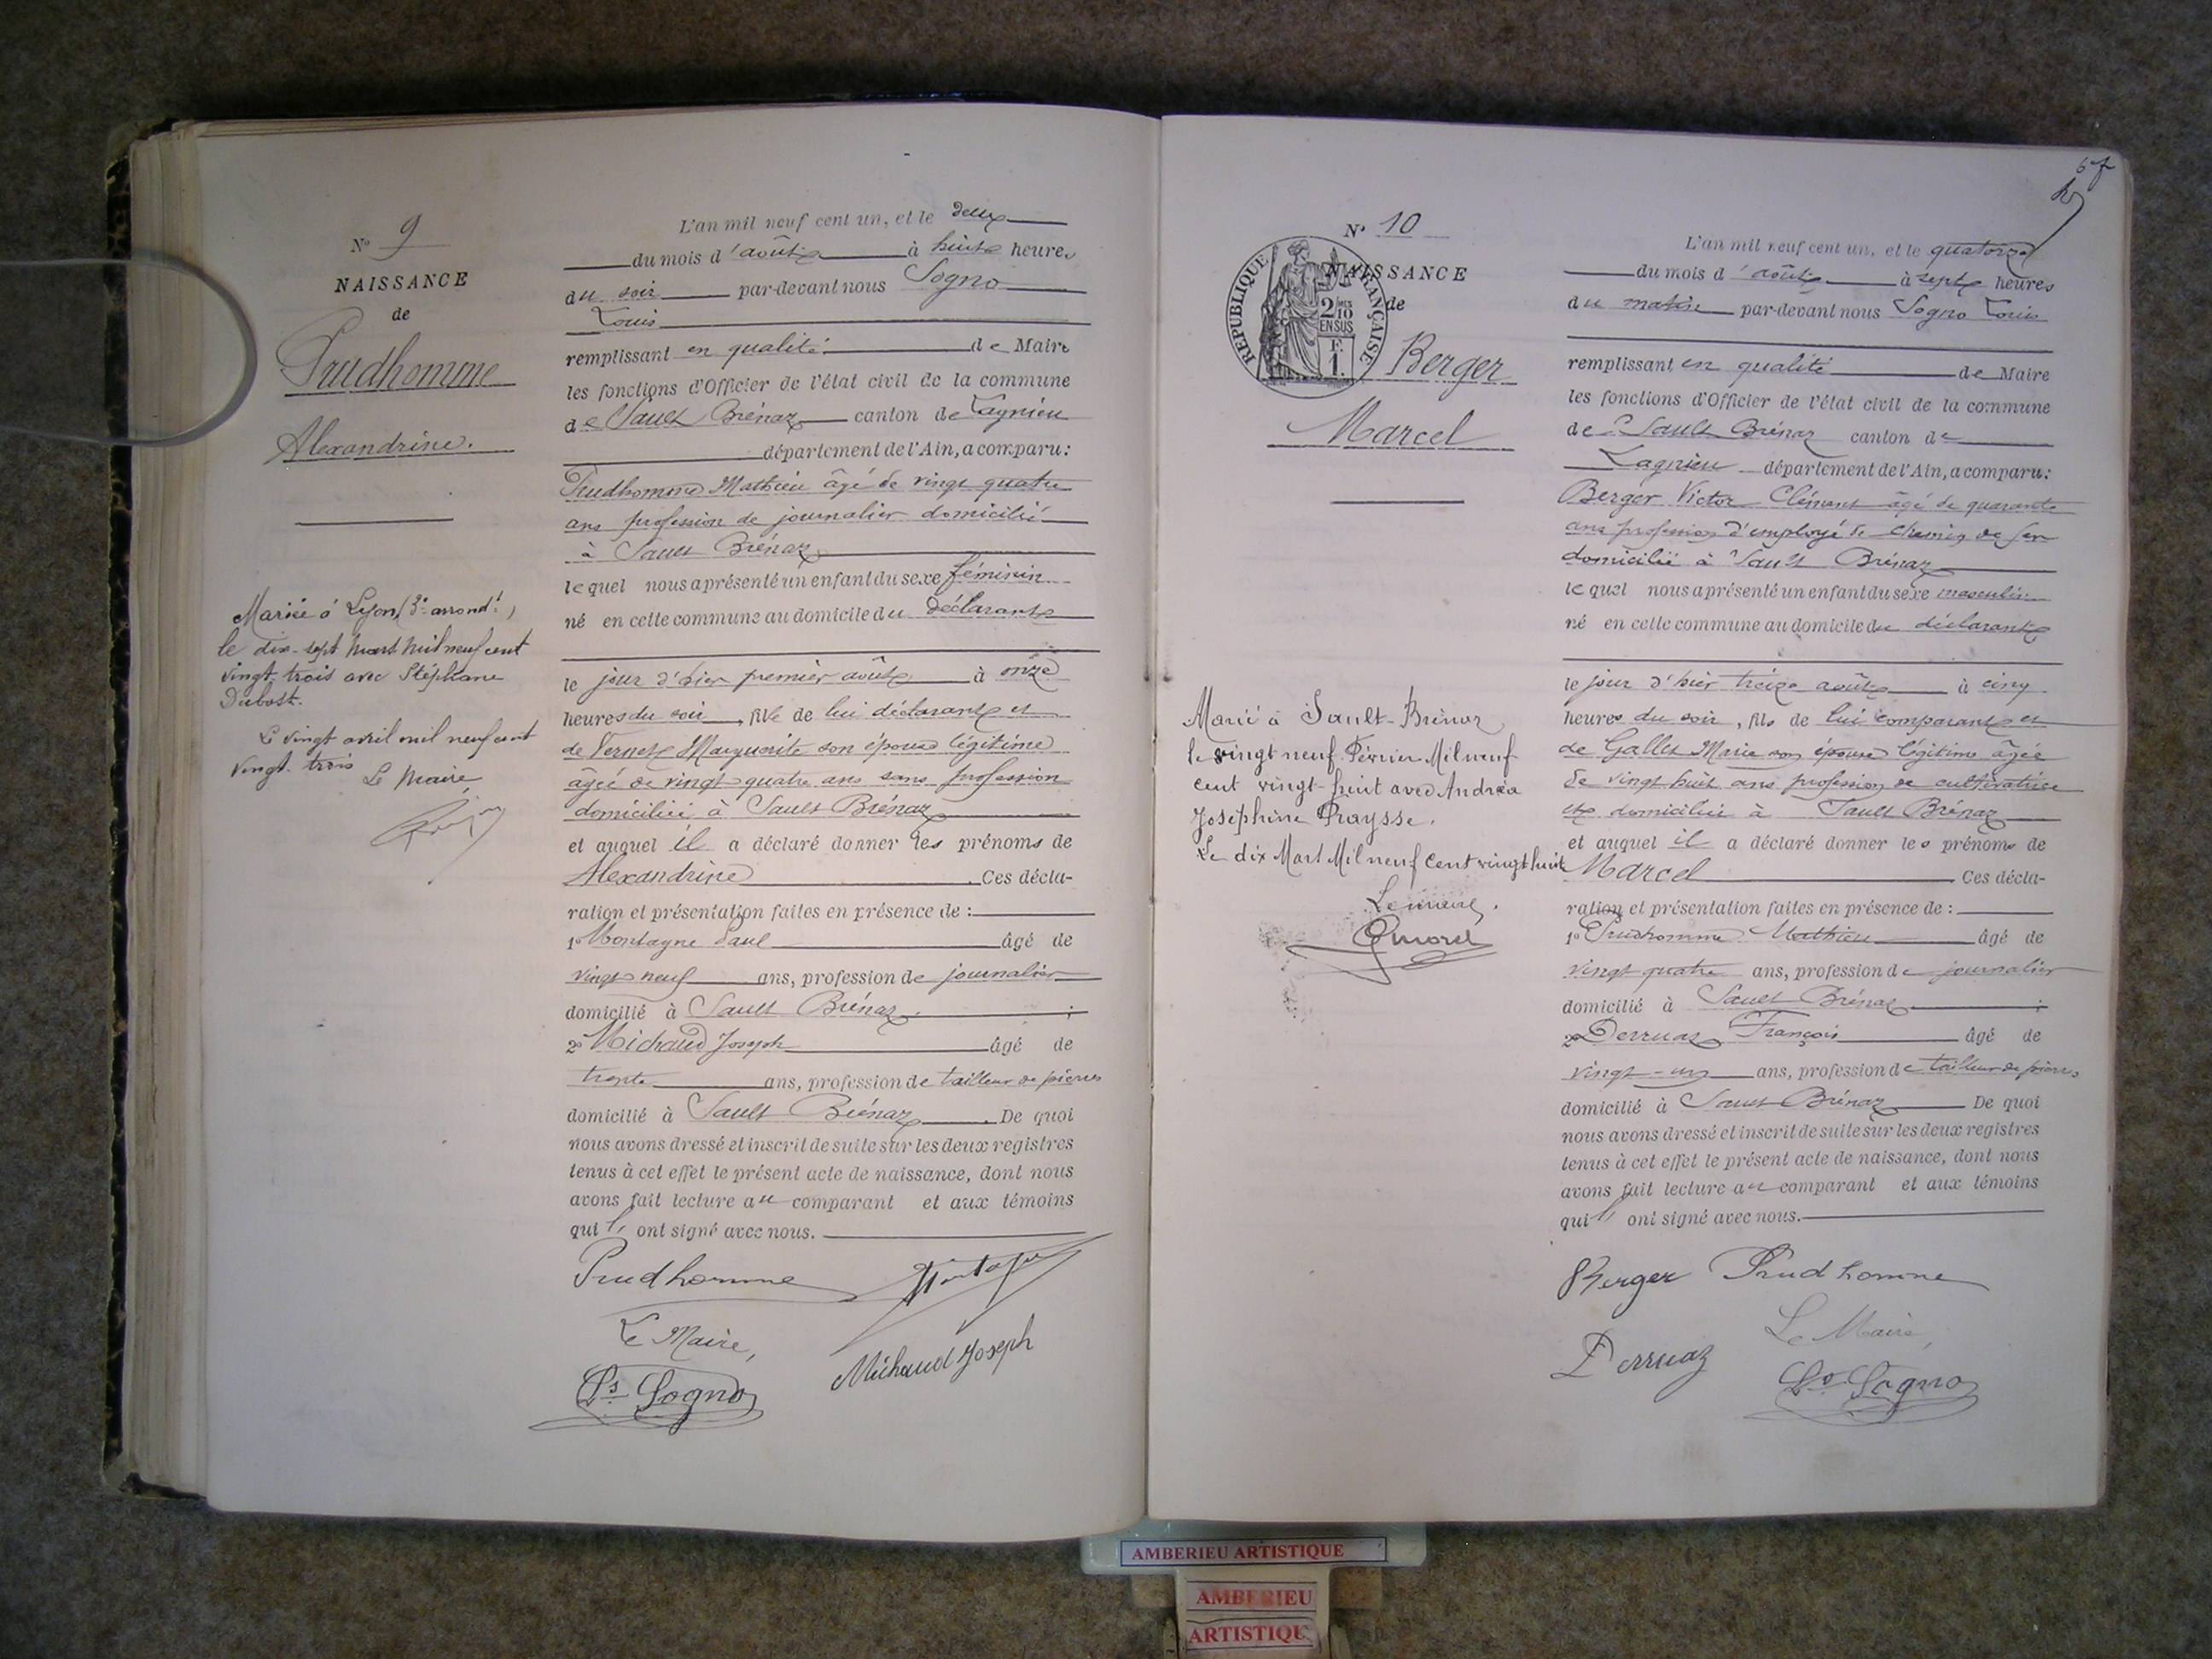 N° 9
NAISSANCE
de
Prudhomme
Alexandrine.
Mariée à Lyon (3e arrondt)
le dix-sept Mars mil neuf cent
vingt trois avec Stéphane
Dubost.
Le vingt avril mil neuf cent
vingt-trois Le Maire,
L'an mil neuf cent un, et le deux
du mois d'août à huit heures
du soir par-devant nous Sogno
Louis
remplissant en qualité de Maire
les fonctions d'Officier de l'état civil de la commune
de Sault Brénaz canton de Lagnieu
département de l'Ain, a comparu:
Prudhomme Mathieu âgé de vingt quatre
ans profession de journalier domicilié
à Sault Brénaz
lequel nous a présenté un enfant du sexe féminin
né en cette commune au domicile du déclarant
le jour d'hier premier août à onze
heures du soir, fille de lui déclarant et
de Vernet Marguerite son épouse légitime
âgée de vingt-quatre ans sans profession
domiciliée à Sault Brénaz
et auquel il a déclaré donner les prénoms de
Alexandrine Ces décla-
ration et présentation faites en présence de :
1° Montagne Paul âgé de
vingt neuf ans, profession de journalier
domicilié à Sault Brénaz ;
2° Michaud Joseph âgé de
trente ans, profession de tailleur de pierres
domicilié à Sault Brénaz. De quoi
nous avons dressé et inscrit de suite sur les deux registres
tenus à cet effet le présent acte de naissance, dont nous
avons fait lecture au comparant et aux témoins
qui l' ont signé avec nous.
Prudhomme
Le Maire,
Michaud Joseph
Ls Sogno
67
N° 10
RÉPUBLIQUE FRANÇAISE
2/10 EN SUS
F. 1.
NAISSANCE
de
Berger
Marcel
Marié à Sault-Brénaz
le vingt neuf Février Mil neuf
cent vingt-huit avec Andréa
Joséphine Praysse.
Le dix Mars Mil neuf Cent vingt huit
Le maire,
L'an mil neuf cent un, et le quatorze
du mois d'août à sept heures
du matin par-devant nous Sogno Louis
remplissant en qualité de Maire
les fonctions d'Officier de l'état civil de la commune
de Sault Brénaz canton de
Lagnieu département de l'Ain, a comparu:
Berger Victor Clément âgé de quarante
ans profession d'employé de chemin de fer
domicilié à Sault Brénaz
lequel nous a présenté un enfant du sexe masculin
né en cette commune au domicile du déclarant
le jour d'hier treize août à cinq
heures du soir, fils de lui comparant et
de Gallet Marie son épouse légitime âgée
de vingt huit ans profession de cultivatrice
et domiciliée à Sault Brénaz
et auquel il a déclaré donner les prénoms de
Marcel Ces décla-
ration et présentation faites en présence de :
1° Prudhomme Mathieu âgé de
vingt quatre ans, profession de journalier
domicilié à Sault Brénaz ;
2° Derruaz François âgé de
vingt-un ans, profession de tailleur de pierres
domicilié à Sault Brénaz De quoi
nous avons dressé et inscrit de suite sur les deux registres
tenus à cet effet le présent acte de naissance, dont nous
avons fait lecture au comparant et aux témoins
qui l' ont signé avec nous.
Berger Prudhomme
Le Maire,
Derruaz
Ls Sogno
AMBERIEU ARTISTIQUE
AMBERIEU
ARTISTIQUE